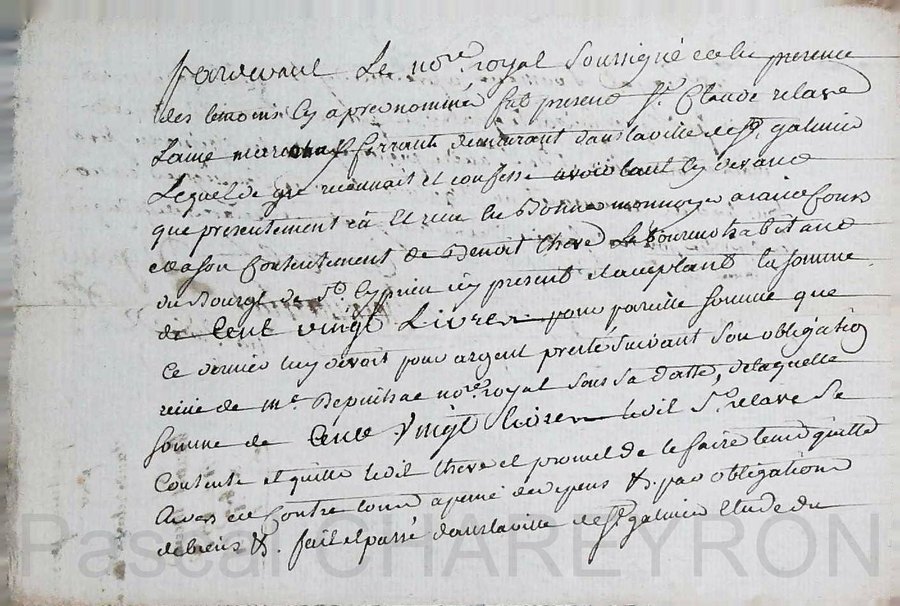 Pardevant Le no.re royal Soussigné et en la presence
des temoins cy apres nommés fut present S.r Claude relave
Laine marchand ferrant demeurant dans la ville de S.t galmier
Lequel de gré reconnait et confesse avoir tant cy devant
que presentement eu et receu en Bonne monnoye aiant Cours
et a son Contentement de Benoit there habitant
du Bourg de S.t Cyprien icy present et acceptant la somme
de Cent vingt Livres pour pareille somme que
Ce dernier luy devoit pour argent presté suivant son obligation
reçue de M.e no.re royal sous sa datte, de laquelle
somme de Cent vingt livres ledit S.r relave se
Contente et quitte ledit there et promet de le faire tenir quitte
envers et Contre tous a peine de depens &. par obligation
de biens &. fait et passé dans la ville de S.t galmier Etude du
Pascal CHAREYRON